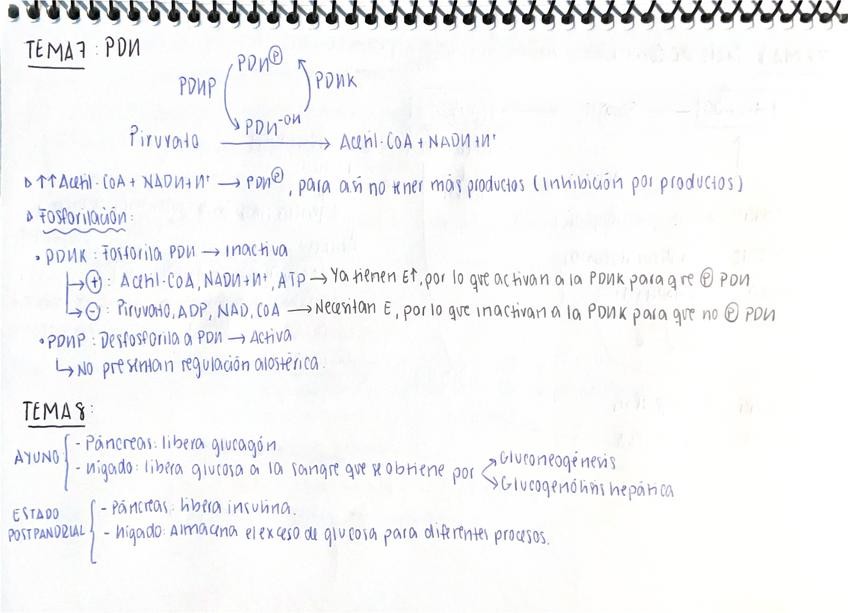 TEMA 7: PDH
PDH Ⓟ
PDHP PDHK
PDH-OH
Piruvato → Acetil-CoA + NADH+H⁺
▹ ↑↑ Acetil-CoA + NADH+H⁺ → PDH Ⓟ, para así no tener más productos (Inhibición por productos)
▹ Fosforilación:
• PDHK: Fosforila PDH → Inactiva
↳ ⊕: Acetil-CoA, NADH+H⁺, ATP → Ya tienen E↑, por lo que activan a la PDHK para que Ⓟ PDH
↳ ⊖: Piruvato, ADP, NAD, CoA → Necesitan E, por lo que inactivan a la PDHK para que no Ⓟ PDH
• PDHP: Desfosforila a PDH → Activa
↳ No presentan regulación alostérica.
TEMA 8:
AYUNO
- Páncreas: libera glucagón
- Hígado: libera glucosa a la sangre que se obtiene por
Gluconeogénesis
Glucogenólisis hepática
ESTADO POSTPANDRIAL
- Páncreas: libera insulina.
- Hígado: Almacena el exceso de glucosa para diferentes procesos.